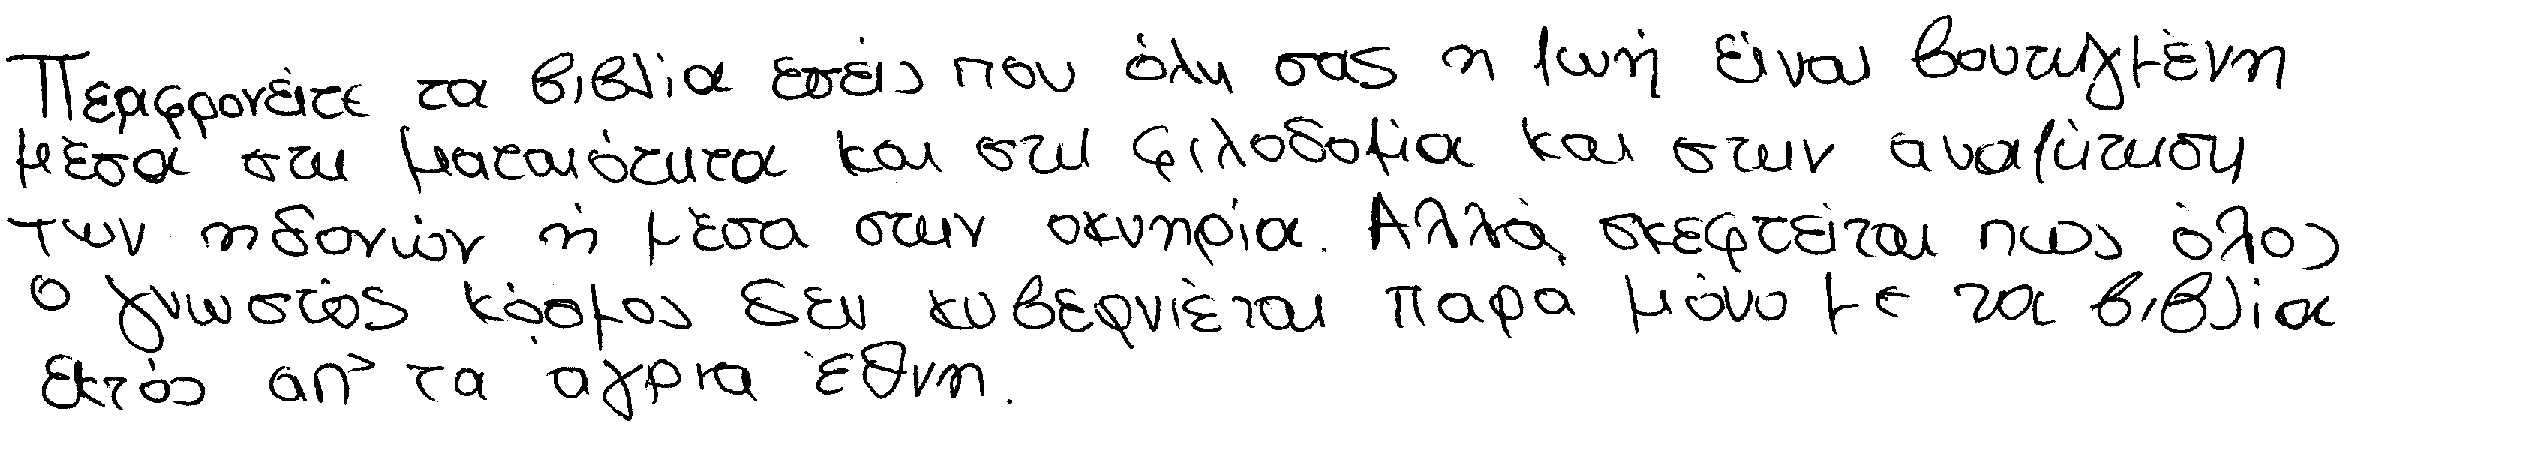 Περιφρονείτε τα βιβλία εσείς που όλη σας η ζωή είναι βουτηγμένη
μέσα στη ματαιότητα και στη φιλοδοξία και στην αναζήτηση
των ηδονών ή μέσα στην οκνηρία. Αλλά σκεφτείται πως όλος
ο γνωστός κόσμος δεν κυβερνιέται παρα μόνο με τα βιβλία
εκτός απ' τα αγρια έθνη.